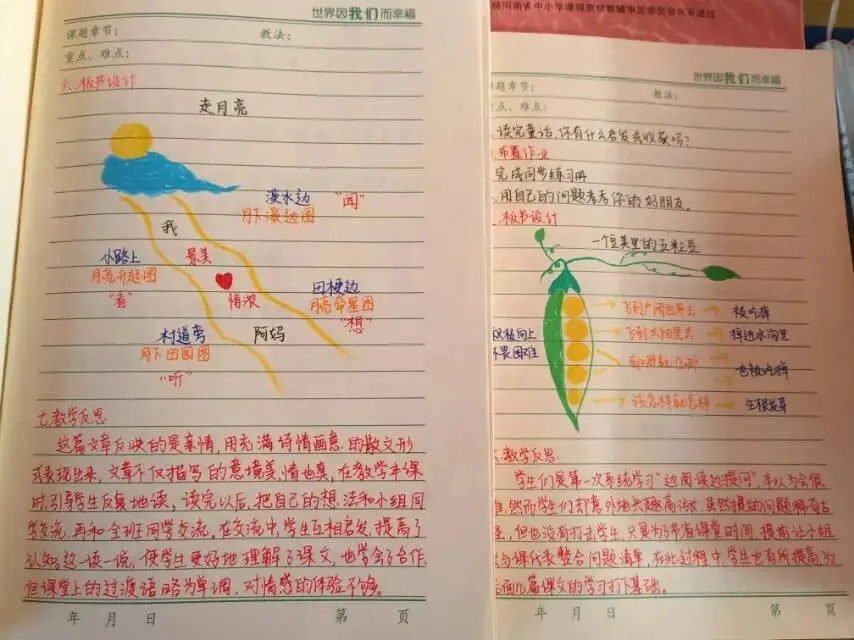 世界因我们而幸福
课题章节： 教法：
重点、难点：
六、板书设计
走月亮
溪水边 "闻"
月下溪边图
我
小路上 景美
月亮升起图 田梗边
"看" 情浓 月亮牵星图
"想"
村道旁 阿妈
月下田园图
"听"
七.教学反思
这篇文章反映的是亲情，用充满诗情画意.的散文形
式表现出来，文章不仅描写的意境美，情也真，在教学本课
时，引导学生反复地读，读完以后，把自己的想法和小组同
学交流，再和全班同学交流，在交流中，学生互相启发，提高了
认知，这一读一说，使学生更好地理解了课文，也学会了合作，
但课堂上的过渡语略为单调，对情感的体验不够。
年 月 日 第 页
河南省中小学课程教材教辅审定委员会审通过
世界因我们而幸福
题章节： 教法：
点、难点：
读完童话，你有什么启发或收获吗？
布置作业
完成同步练习册
用自己的问题考考你的好朋友。
板书设计
一个豆荚里的五粒豆
飞到广阔世界去 被吃掉
积极向上 飞到太阳里去 掉进水沟里
不畏困难 也被吃掉
该怎样就怎样 生根发芽
教学反思
学生们是第一次系统学习"边阅读边提问"，本以为会很
然而学生们却意外地兴趣高涨，虽然提的问题稀奇古
但也没有打击学生，只是为了节省课堂时间，提前让小组
与课代表整合问题清单，在此过程中，学生也有所提高，为
后面几篇课文的学习打下基础。
年 月 日 第 页